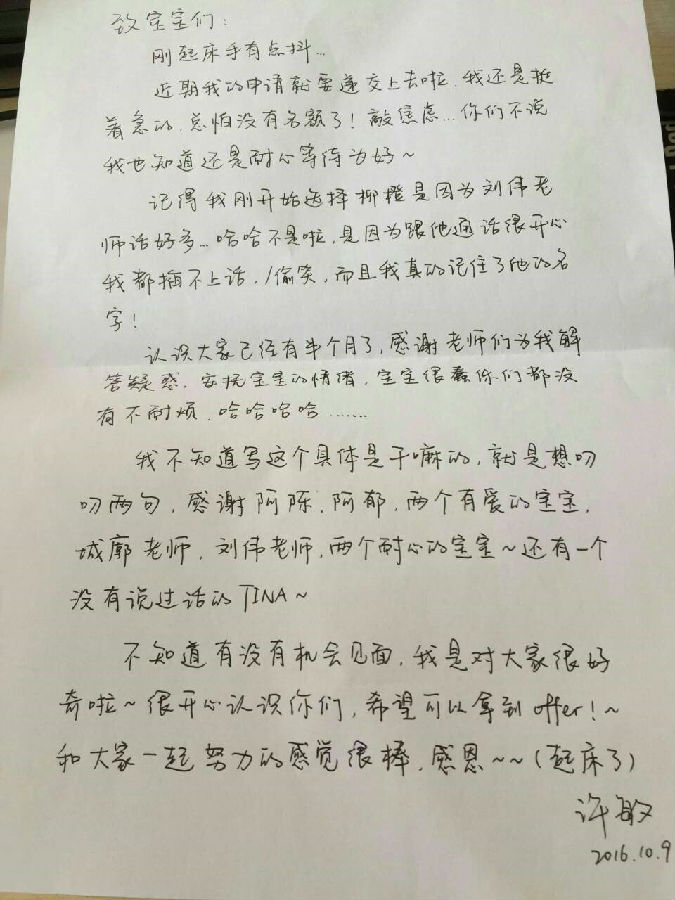 致宝宝们：
刚起床手有点抖...
近期我的申请就要递交上去啦，我还是挺
着急的，总怕没有名额了！敲焦虑...你们不说
我也知道还是耐心等待为好～
记得我刚开始选择柳橙是因为刘伟老
师话好多...哈哈不是啦，是因为跟他通话很开心
我都插不上话，/偷笑，而且我真的记住了他的名
字！
认识大家已经有半个月了，感谢老师们为我解
答疑惑，安抚宝宝的情绪，宝宝很蠢你们都没
有不耐烦，哈哈哈哈.......
我不知道写这个具体是干嘛的，就是想叨
叨两句，感谢阿陈，阿郁，两个有爱的宝宝，
城廓老师，刘伟老师，两个耐心的宝宝～还有一个
没有说过话的TINA～
不知道有没有机会见面，我是对大家很好
奇啦～很开心认识你们，希望可以拿到offer！～
和大家一起努力的感觉很棒，感恩～～(起床了)
许敏
2016.10.9